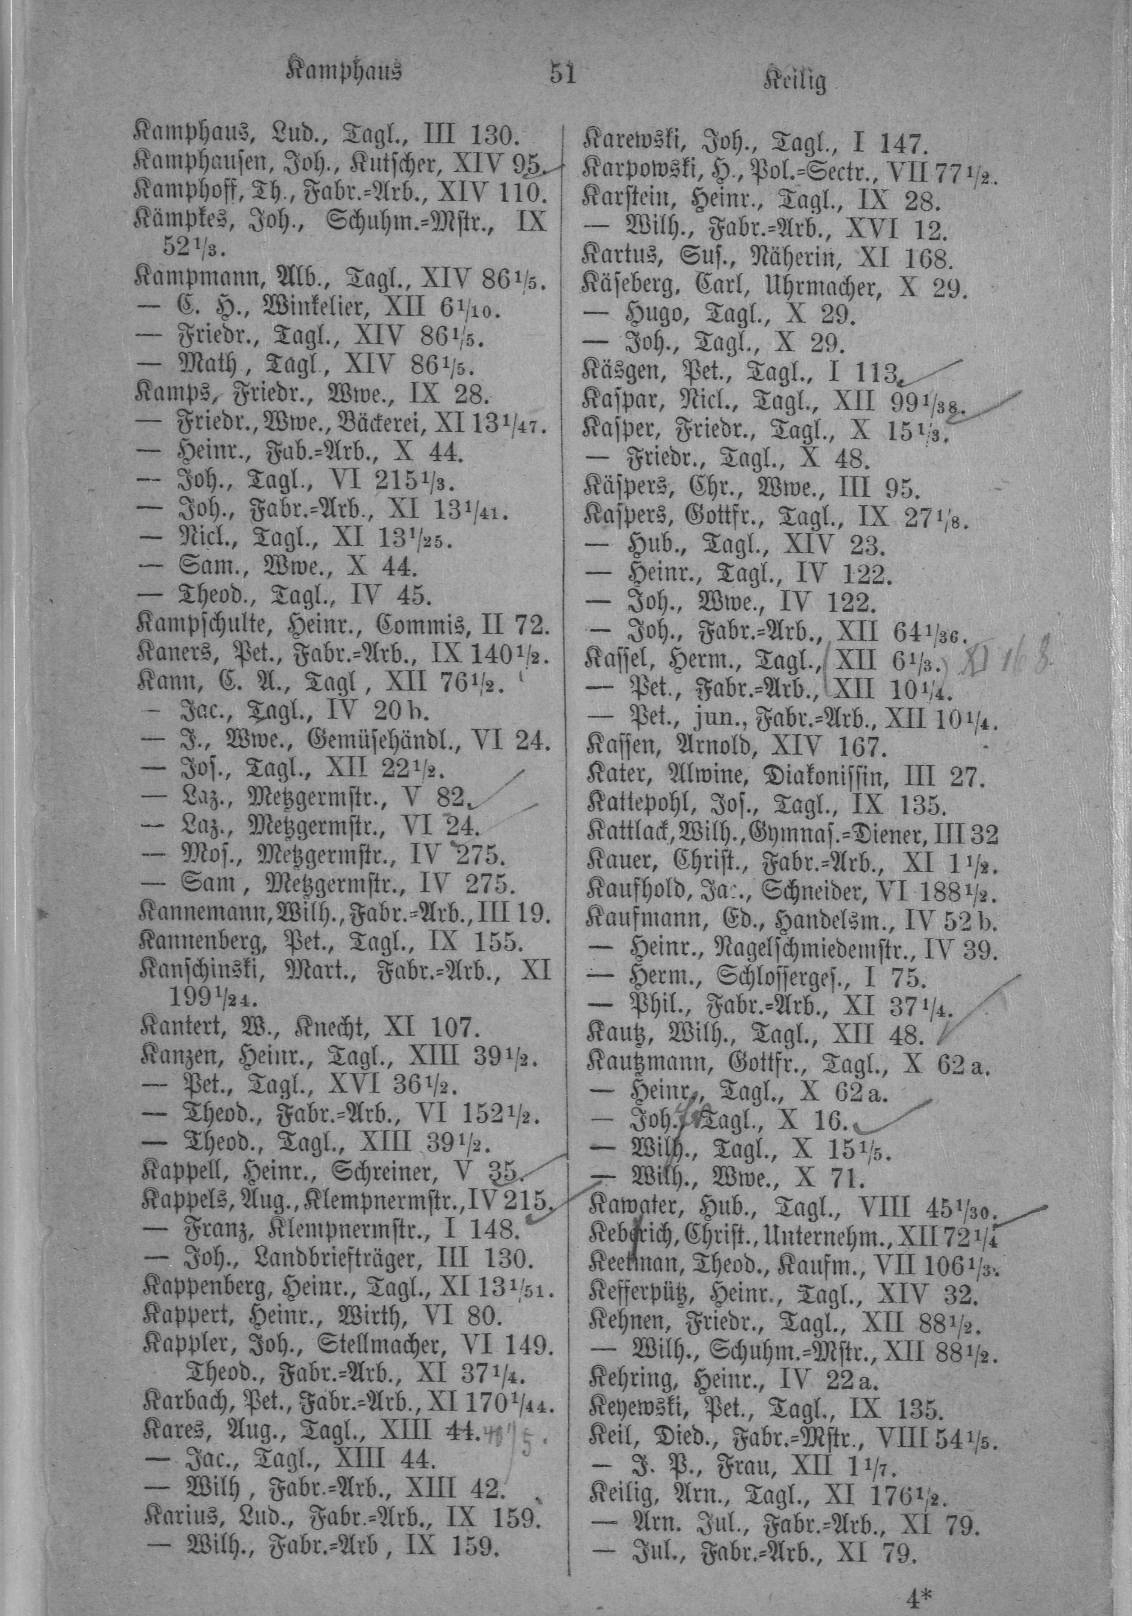 Kamphaus 51 Keilig
Kamphaus, Lud., Tagl., III 130.
Kamphausen, Joh., Kutscher, XIV 95.
Kamphoff, Th., Fabr.=Arb., XIV 110.
Kämpkes, Joh., Schuhm.=Mstr., IX
52 1/3.
Kampmann, Alb., Tagl., XIV 86 1/5.
— C. H., Winkelier, XII 6 1/10.
— Friedr., Tagl., XIV 86 1/5.
— Math, Tagl, XIV 86 1/5.
Kamps, Friedr., Wwe., IX 28.
— Friedr., Wwe., Bäckerei, XI 13 1/47.
— Heinr., Fab.=Arb., X 44.
— Joh., Tagl., VI 215 1/3.
— Joh., Fabr.=Arb., XI 13 1/41.
— Nicl., Tagl., XI 13 1/25.
— Sam., Wwe., X 44.
— Theod., Tagl., IV 45.
Kampschulte, Heinr., Commis, II 72.
Kaners, Pet., Fabr.=Arb., IX 140 1/2.
Kann, C. A., Tagl, XII 76 1/2.
— Jac., Tagl., IV 20 b.
— J., Wwe., Gemüsehändl., VI 24.
— Jos., Tagl., XII 22 1/2.
— Laz., Metzgermstr., V 82.
— Laz., Metzgermstr., VI 24.
— Mos., Metzgermstr., IV 275.
— Sam, Metzgermstr., IV 275.
Kannemann, Wilh., Fabr.=Arb., III 19.
Kannenberg, Pet., Tagl., IX 155.
Kanschinski, Mart., Fabr.=Arb., XI
199 1/24.
Kantert, W., Knecht, XI 107.
Kanzen, Heinr., Tagl., XIII 39 1/2.
— Pet., Tagl., XVI 36 1/2.
— Theod., Fabr.=Arb., VI 152 1/2.
— Theod., Tagl., XIII 39 1/2.
Kappell, Heinr., Schreiner, V 35.
Kappels, Aug., Klempnermstr., IV 215.
— Franz, Klempnermstr., I 148.
— Joh., Landbriefträger, III 130.
Kappenberg, Heinr., Tagl., XI 13 1/51.
Kappert, Heinr., Wirth, VI 80.
Kappler, Joh., Stellmacher, VI 149.
Theod., Fabr.=Arb., XI 37 1/4.
Karbach, Pet., Fabr.=Arb., XI 170 1/44.
Kares, Aug., Tagl., XIII 44.
— Jac., Tagl., XIII 44.
— Wilh, Fabr.=Arb., XIII 42.
Karius, Lud., Fabr.=Arb., IX 159.
— Wilh., Fabr.=Arb, IX 159.
Karewski, Joh., Tagl., I 147.
Karpowski, H., Pol.=Sectr., VII 77 1/2.
Karstein, Heinr., Tagl., IX 28.
— Wilh., Fabr.=Arb., XVI 12.
Kartus, Sus., Näherin, XI 168.
Käseberg, Carl, Uhrmacher, X 29.
— Hugo, Tagl., X 29.
— Joh., Tagl., X 29.
Käsgen, Pet., Tagl., I 113.
Kaspar, Nicl., Tagl., XII 99 1/38.
Kasper, Friedr., Tagl., X 15 1/3.
— Friedr., Tagl., X 48.
Käspers, Chr., Wwe., III 95.
Kaspers, Gottfr., Tagl., IX 27 1/8.
— Hub., Tagl., XIV 23.
— Heinr., Tagl., IV 122.
— Joh., Wwe., IV 122.
— Joh., Fabr.=Arb., XII 64 1/36.
Kassel, Herm., Tagl., XII 6 1/3. XI 168
— Pet., Fabr.=Arb., XII 10 1/4.
— Pet., jun., Fabr.=Arb., XII 10 1/4.
Kassen, Arnold, XIV 167.
Kater, Alwine, Diakonissin, III 27.
Kattepohl, Jos., Tagl., IX 135.
Kattlack, Wilh., Gymnas.=Diener, III 32
Kauer, Christ., Fabr.=Arb., XI 1 1/2.
Kaufhold, Ja:., Schneider, VI 188 1/2.
Kaufmann, Ed., Handelsm., IV 52 b.
— Heinr., Nagelschmiedemstr., IV 39.
— Herm., Schlosserges., I 75.
— Phil., Fabr.=Arb., XI 37 1/4.
Kautz, Wilh., Tagl., XII 48.
Kautzmann, Gottfr., Tagl., X 62 a.
— Heinr., Tagl., X 62 a.
— Joh., Tagl., X 16.
— Wilh., Tagl., X 15 1/5.
— Wilh., Wwe., X 71.
Kawater, Hub., Tagl., VIII 45 1/30.
Keberich, Christ., Unternehm., XII 72 1/4
Keetman, Theod., Kaufm., VII 106 1/3.
Kefferpütz, Heinr., Tagl., XIV 32.
Kehnen, Friedr., Tagl., XII 88 1/2.
— Wilh., Schuhm.=Mstr., XII 88 1/2.
Kehring, Heinr., IV 22 a.
Keyewski, Pet., Tagl., IX 135.
Keil, Died., Fabr.=Mstr., VIII 54 1/5.
— J. P., Frau, XII 1 1/7.
Keilig, Arn., Tagl., XI 176 1/2.
— Arn. Jul., Fabr.=Arb., XI 79.
— Jul., Fabr.=Arb., XI 79.
4*